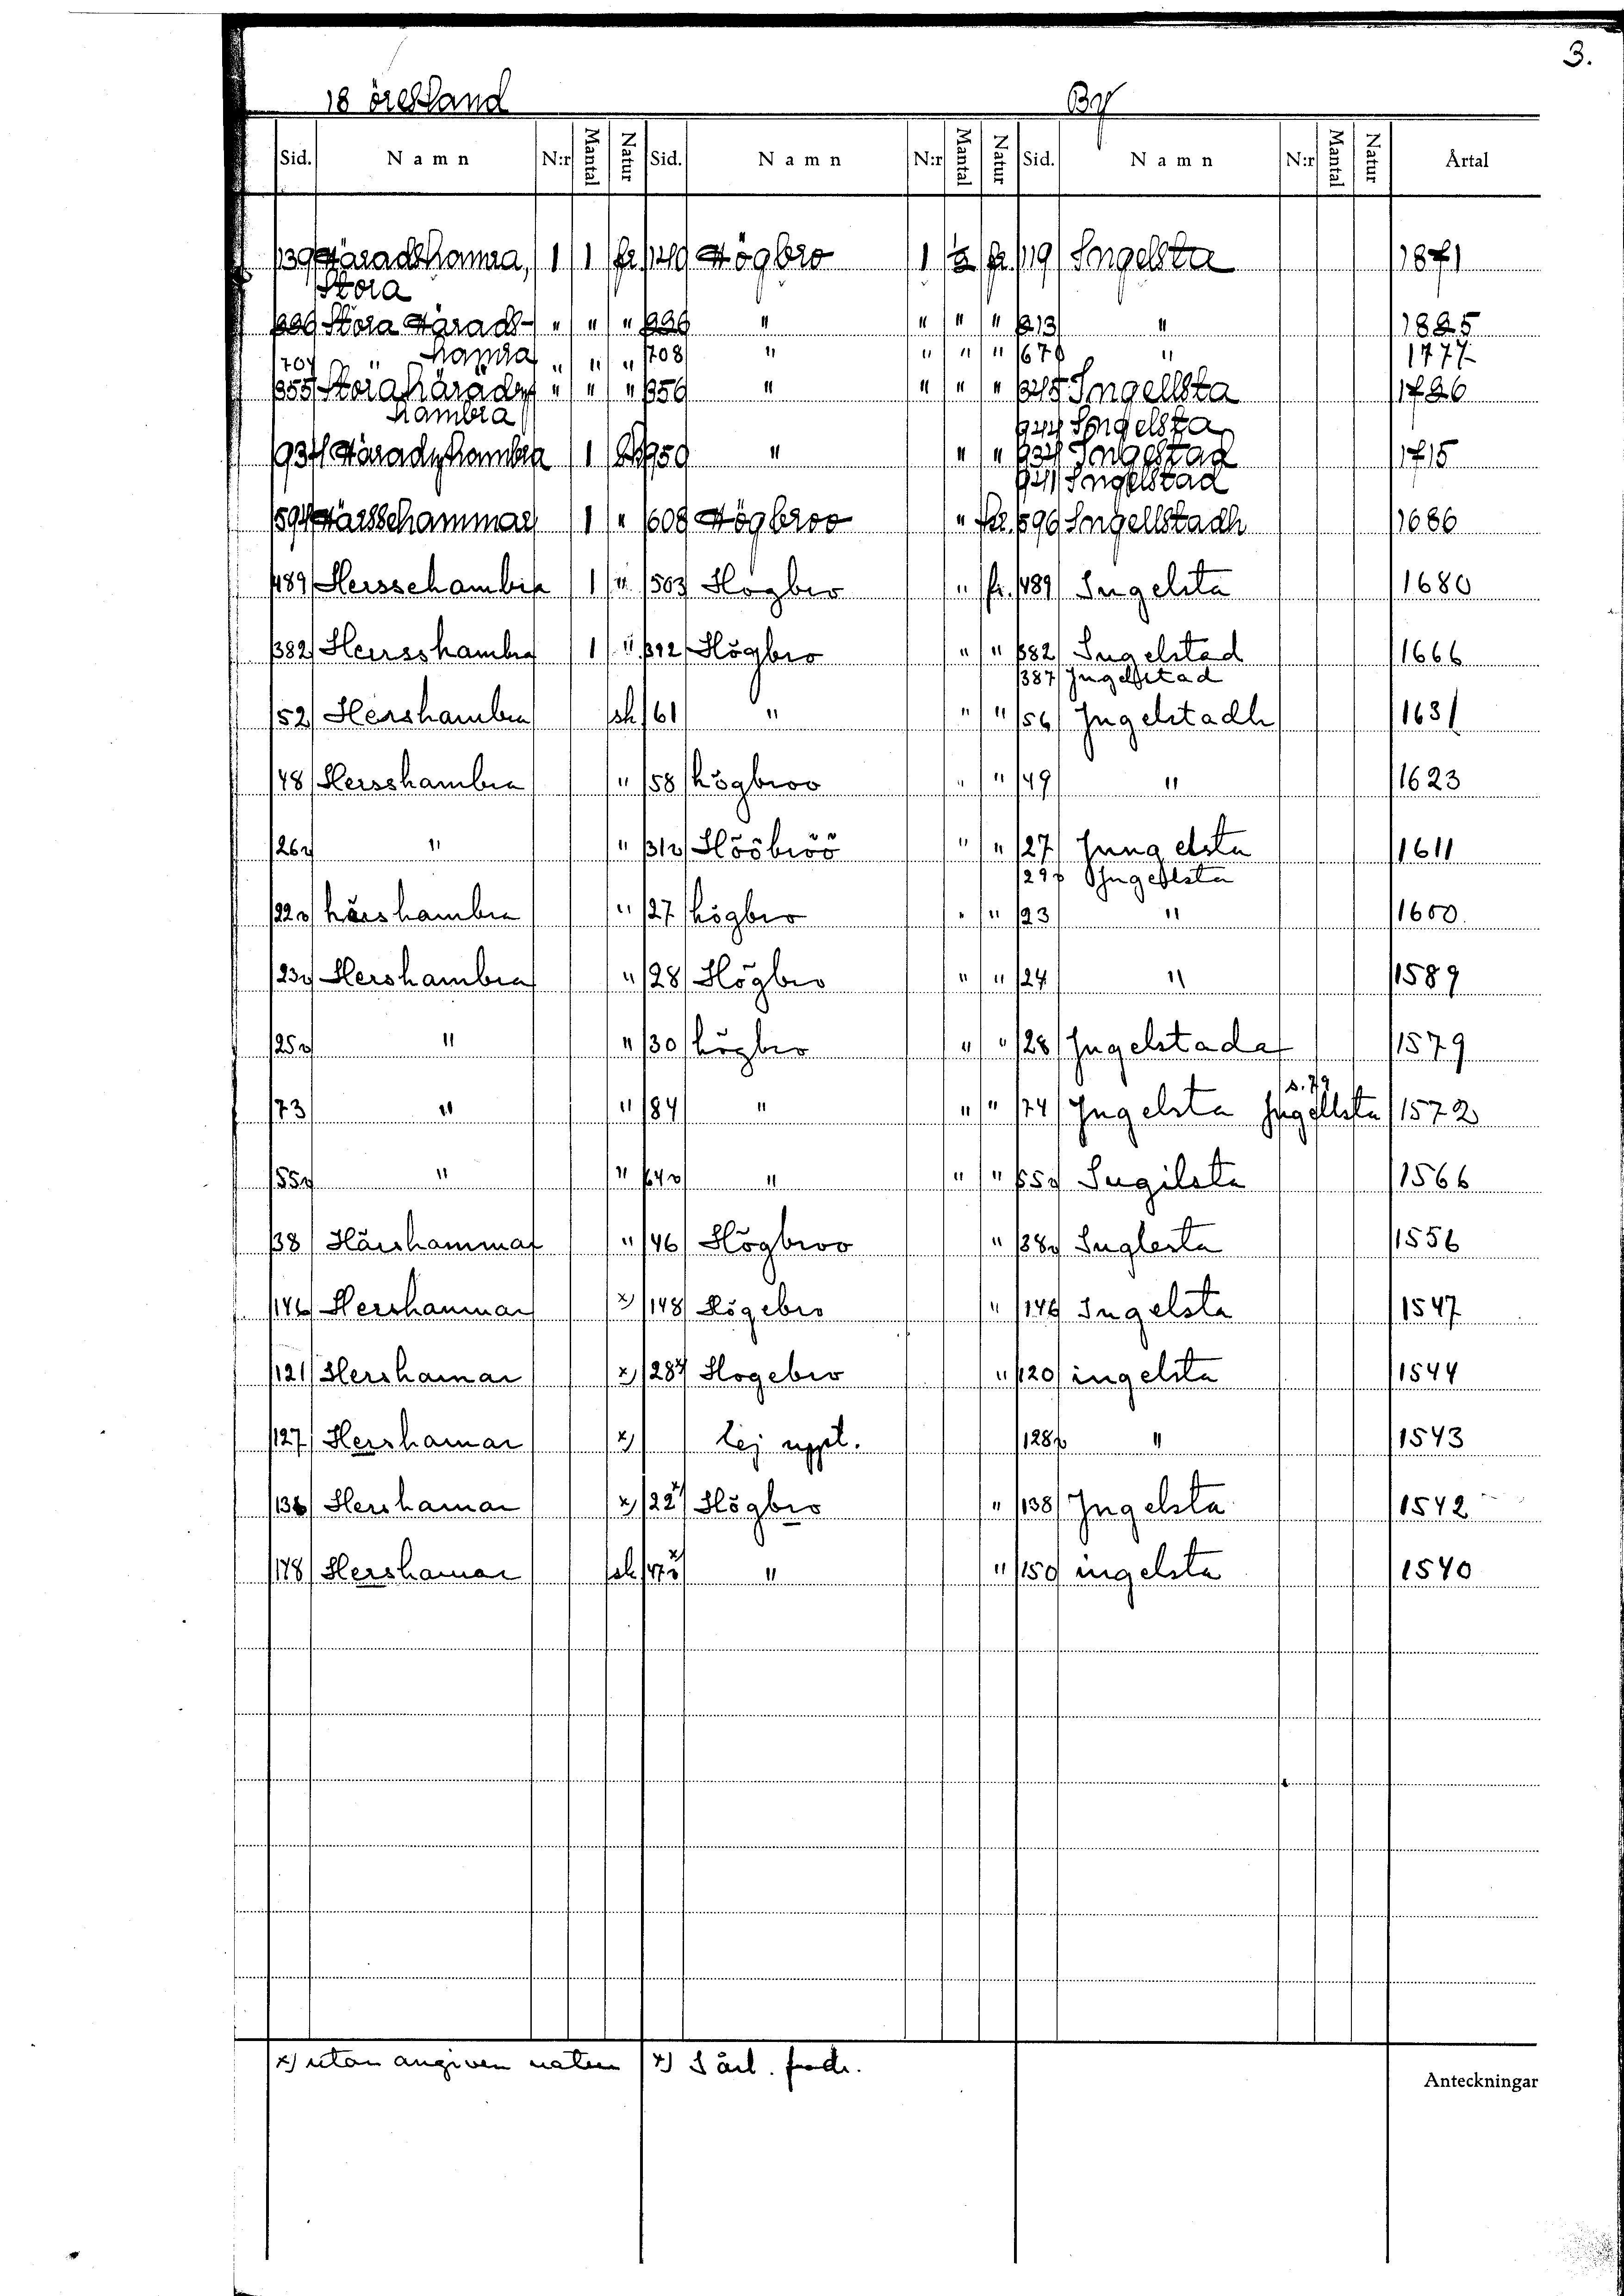 3.
18 öresland By
Sid. Namn N:r Mantal Natur Sid. Namn N:r Mantal Natur Sid. Namn N:r Mantal Natur Årtal
139 Häradshamra, 1 1 fr. 140 Högbro 1 ½ fr. 119 Ingelsta 1871
Stora
226 Stora Härads- " " " 226 " " " " 213 " 1825
704 " hamra " " " 708 " " " " 670 " 1777
355 Stora häradz " " " 356 " " " " 345 Ingellsta 1726
hambra
944 Ingelsta
934 Häradzhambra 1 950 " " " 934 Ingelstad 1715
941 Ingelstad
594 Härsschammar 1 " 608 Högbroo " fr. 596 Ingellstadh 1686
489 Hersschambra 1 " 503 Högbro " fr. 489 Ingelsta 1680
382 Herrsshambra 1 " 392 Högbro " " 382 Ingelstad 1666
387 Jngelstad
52 Hershambra sk 61 " " " 56 Jngelstadh 1631
48 Hersshambra " 58 högbroo " " 49 " 1623
26v " " 31v Hööbröö " " 27 Jungelsta 1611
29v Jngellsta
22v härshambra " 27 högbro " " 23 " 1600
23v Hershambra " 28 Högbro " " 24 " 1589
25v " " 30 högbro " " 28 Jngelstada 1579
s. 79
73 " " 84 " " " 74 Jngelsta Jngellsta 1572
55v " " 64v " " " 55v Ingilsta 1566
38 Härshammar " 46 Högbroo " 38v Inglesta 1556
146 Hershammar x) 148 Högebro " 146 Ingelsta 1547
121 Hershamar x) 28x) Hogebro " 120 ingelsta 1544
127 Hershamar x) Ej uppt. 128v " 1543
136 Hershamar x) 22x) Högbro " 138 Jngelsta 1542
148 Hershamar sk 47v x) " " 150 ingelsta 1540
x) utan angiven natur x) I årl.
Anteckningar